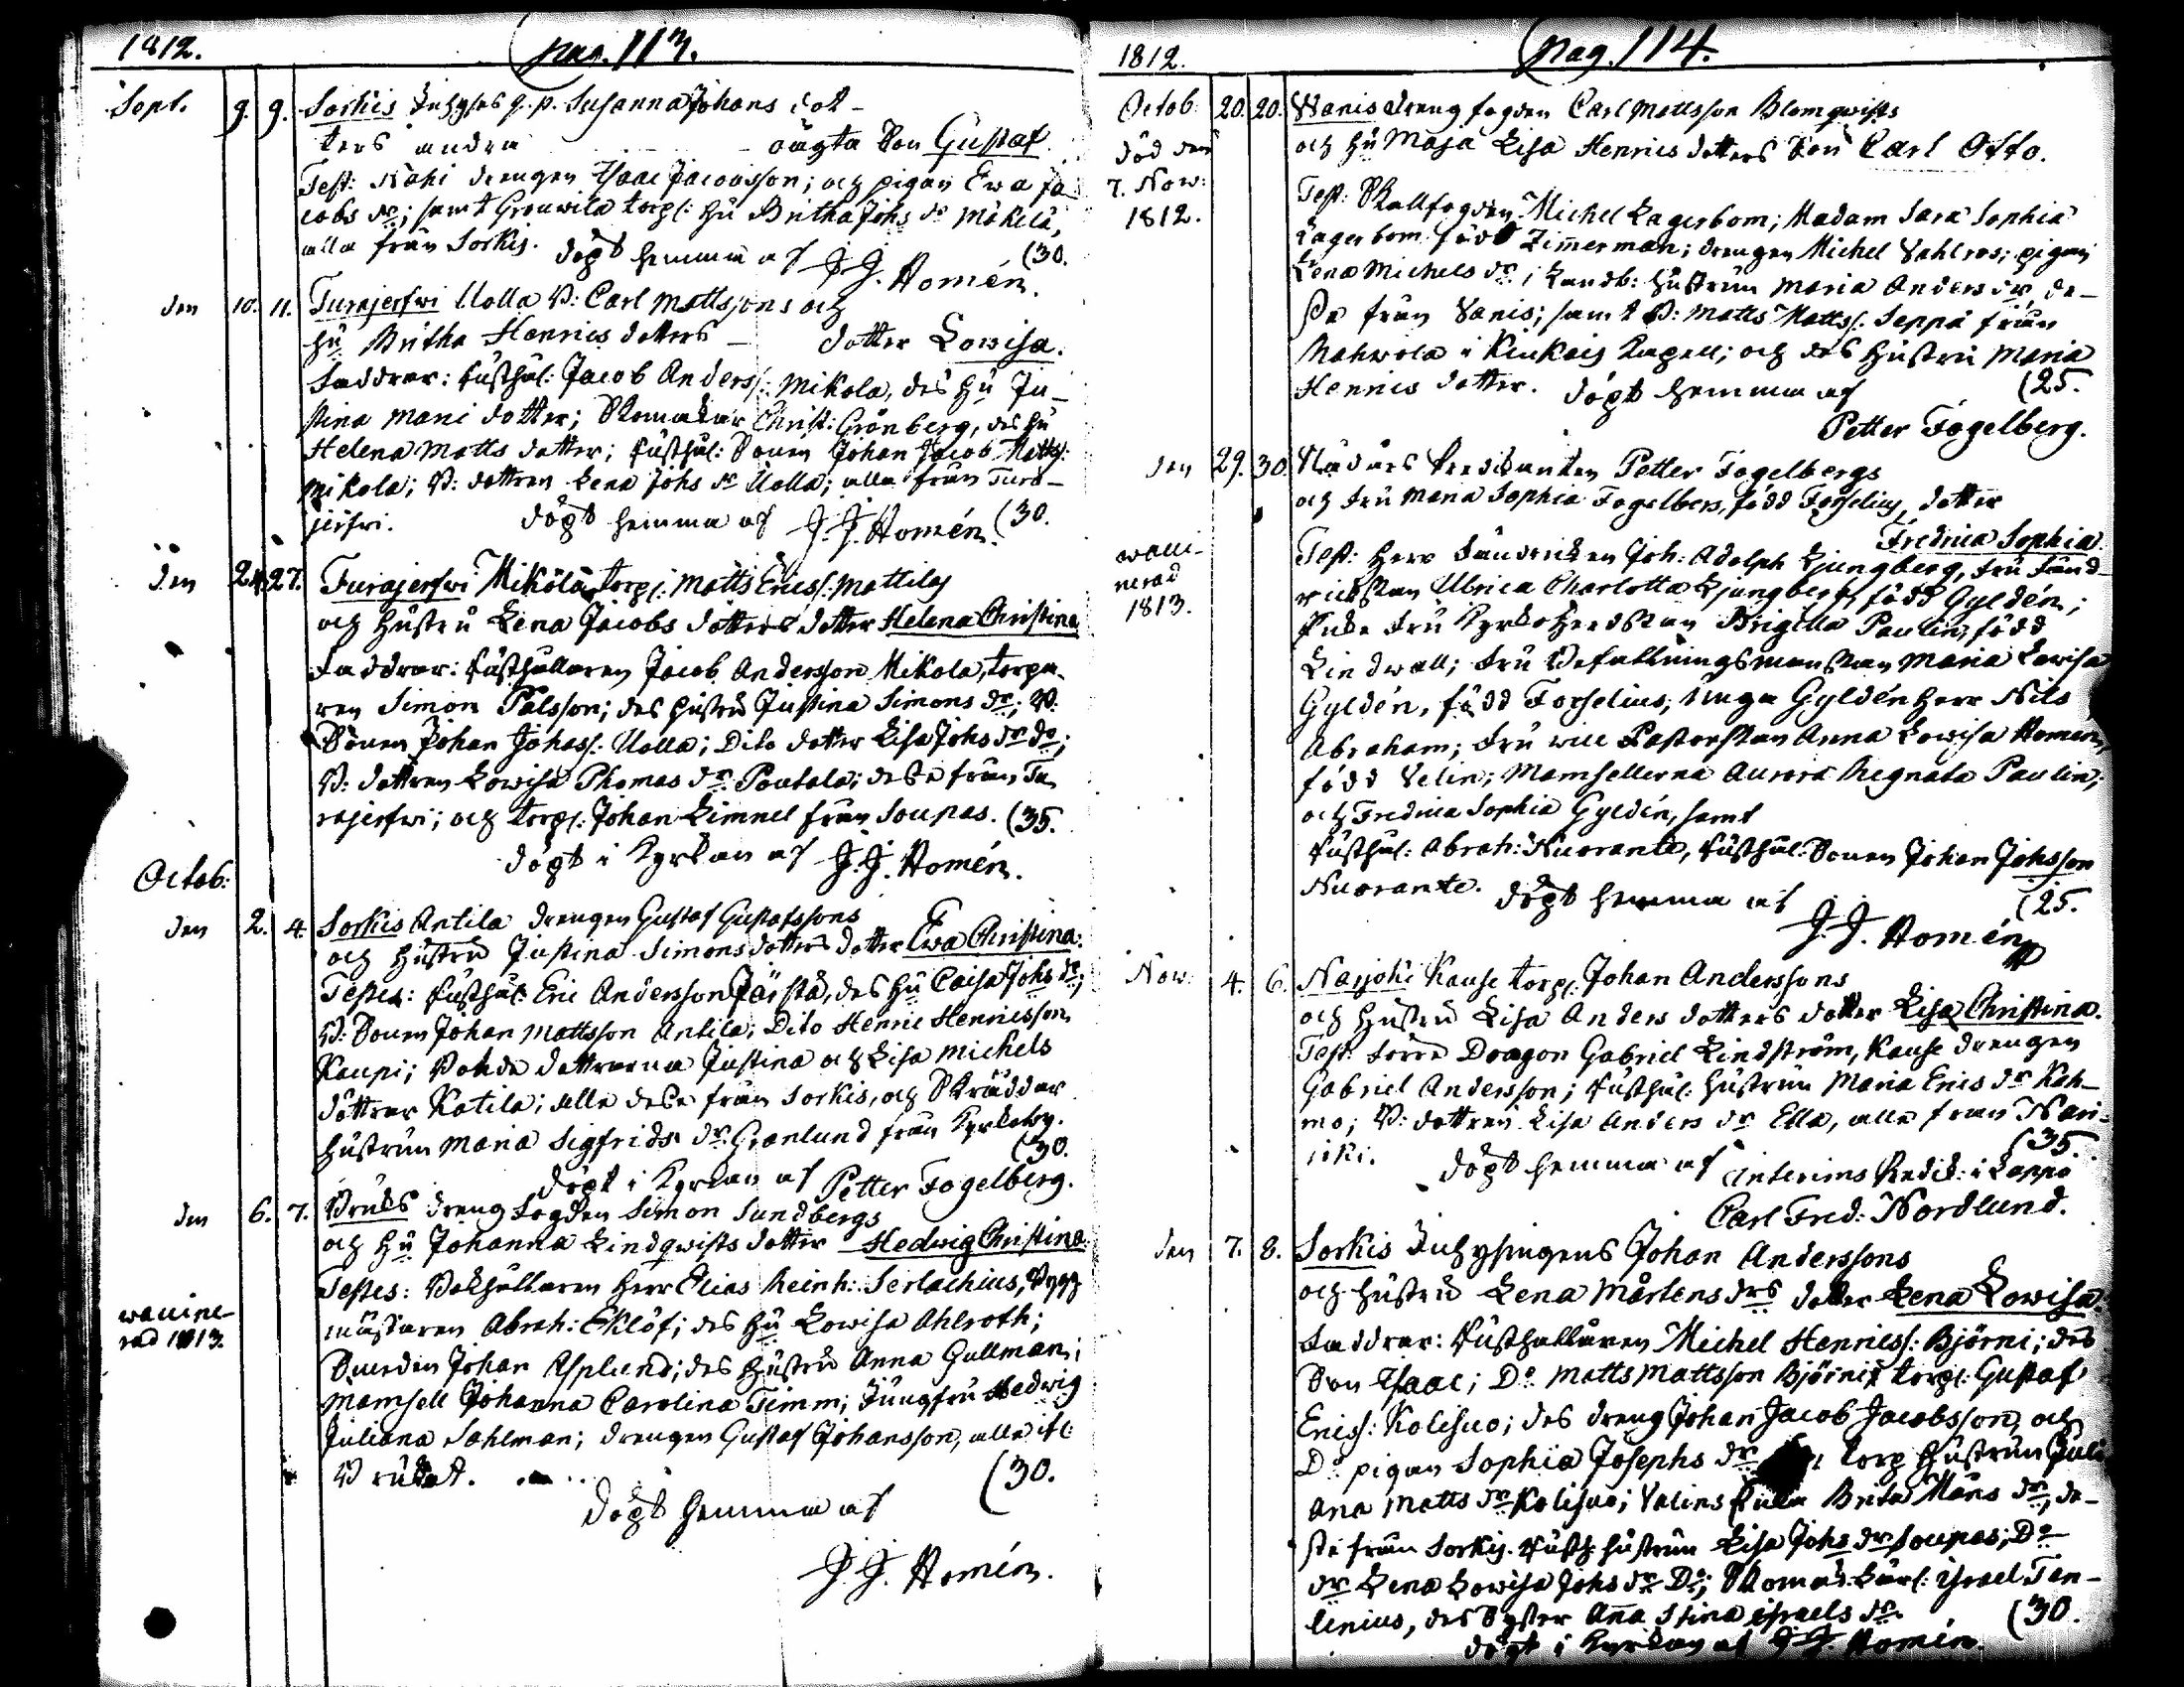 1812. pag. 113.
Sept. 9. 9. Sorkis Inhyses q. p. Susanna Johans dot-
ters andra oägta Son Gustaf
Test: Nähi drengen Isaac Jacobsson; och pigan Ewa Ja
cobs dr; samt Gronwila torp: hu Britha Johs dr Mäkelä,
alla från Sorkis. döpt hemma af (30.
J. J. Homén.
den 10. 11. Turajerfwi Uolla B: Carl Mattssons och
hu Britha Henrics dotters dotter Lowisa.
Faddrar: Rusthål: Jacob Anderss: Mikola, des hu Ju-
stina Mani dotter; Skomakar Christ: Grönberg, des hu
Helena Matts dotter; Rusthål: Sonen Johan Jacob Matts:
Mikola; B: dottren Lena Johs dr Uolla; alla från Tura-
jerfwi. döpt hemma af J. J. Homén. (30.
den 24. 27. Turajerfwi Mikola torp: Matts Erics: Mattilas
och hustru Lena Jacobs dotters dotter Helena Christina
Faddrar: Rusthållaren Jacob Andersson Mikola, torpa-
ren Simon Pålsson; des hustru Justina Simons dr; B:
Sonen Johan Johass: Uolla; Dito dotter Lisa Johs dr do;
B: dottren Lowisa Thomas dr Poutala; dese från Tu
rajerfwi; och torp: Johan Limnel från Soupas. (35.
döpt i Kyrkan af J. J. Homén.
Octob:
den 2. 4. Sorkis Antila drengen Gustaf Gustafssons
och hustru Justina Simons dotters dotter Ewa Christina.
Testes: Rusthål: Eric Andersson Järstä, des hu Caisa Johs dr;
B: Sonen Johan Mattsson Antila; Dito Henric Henricsson
Kaupi; Bonde dottrarna Justina och Lisa Michels
döttrar Katila; alla dese från Sorkis, och Skräddar
hustrun Maria Sigfrids dr Grönlund från Kyrkoby.
(30.
döpt i Kyrkan af Petter Fogelberg.
den 6. 7. Bruks dreng Fogden Simon Sundbergs
och hu Johanna Lindqwists dotter Hedwig Christina.
Testes: Bokhållaren Herr Elias Reinh: Serlachius, Bygg
mästaren Abrah: Eklöf; des hu Lowisa Ahlroth;
Smeden Johan Asplund; des hustru Anna Gullman;
Mamsell Johanna Carolina Timm; Jungfru Hedwig
Juliana Sahlman; drengen Gustaf Johansson, alla ifr:
Bruket. (30.
waccine-
rad 1813.
döpt hemma af
J. J. Homén.
1812. pag. 114.
Octob: 20. 20. Wanis dreng fogden Carl Mattsson Blomqwists
och hu Maja Lisa Henrics dotters Son Carl Otto.
död den
7. Now:
1812.
Test: Skallfogden Michel Lagerbom; Madam Sara Sophia
Lagerbom född Zimerman; drengen Michel Wahlros; pigan
Lena Michels dr; Landb: hustrun Maria Anders dr, de-
sse från Wanis; samt B: Matts Matts: Seppä från
Mahwola i Kiukais Kapell; och des hustru Maria
Henrics dotter. döpt hemma af (25.
Petter Fogelberg.
den 29. 30. Nådårs Predikanten Petter Fogelbergs
och Fru Maria Sophia Fogelberg, född Forselius, dotter
Fredrica Sophia.
waccinerad
1813.
Test: Herr Fändricken Joh: Adolph Ljungberg, Fru Fänd-
rickskan Ulrica Charlotta Ljungberg, född Gyldén;
Enke Fru Kyrkoherdskan Brigitta Paulin, född
Lindwall; Fru Befallningsmanskan Maria Lowisa
Gyldén, född Forselius; Unga Gyldén Herr Nils
Abraham; Fru wice Pastorskan Anna Lowisa Homén,
född Welin; Mamsellerna Aurora Regnata Paulin;
och Fredrica Sophia Gyldén, samt
Rusthål: Abrah: Nuorante, Rusthål: Sonen Johan Johsson
Nuorante. döpt hemma af (25.
J. J. Homén
Now: 4. 6. Narjoki Kause torp: Johan Anderssons
och hustru Lisa Anders dotters dotter Lisa Christina.
Test: Förre Dragon Gabriel Lindström, Kause drengen
Gabriel Andersson; Rusthål: hustrun Maria Erics dr Kah-
mo; B: dottren Lisa Anders dr Ella, alla från Nari-
joki. (35.
döpt hemma af Interims Predik: i Lappo
Carl Fred: Nordlund.
den 7. 8. Sorkis Inhysingens Johan Anderssons
och hustru Lena Mårtens drs dotter Lena Lowisa.
Faddrar: Rusthållaren Michel Henrics: Björni; des
Son Isaac; Do Matts Mattsson Björni; torp: Gustaf
Erics: Kolisuo; des dreng Johan Jacob Jacobsson, och
Do pigan Sophia Josephs dr torp hustrun Juli
ana Matts dr Kolisuo; Brita Måns dr, de-
sse från Sorkis. Rusth hustrun Lisa Johs dr Soupas; Do
dr Lena Lowisa Johs dr Do; Skomak: Lärl: Israel Ten-
lenius, des Syster Ana Stina Israels dr. (30.
döpt i Kyrkan af J J Homén.